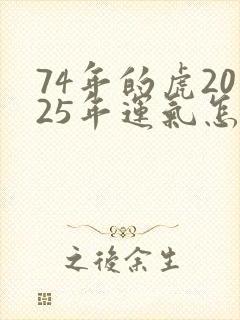 74年的虎20
25年運氣怎
之後余生